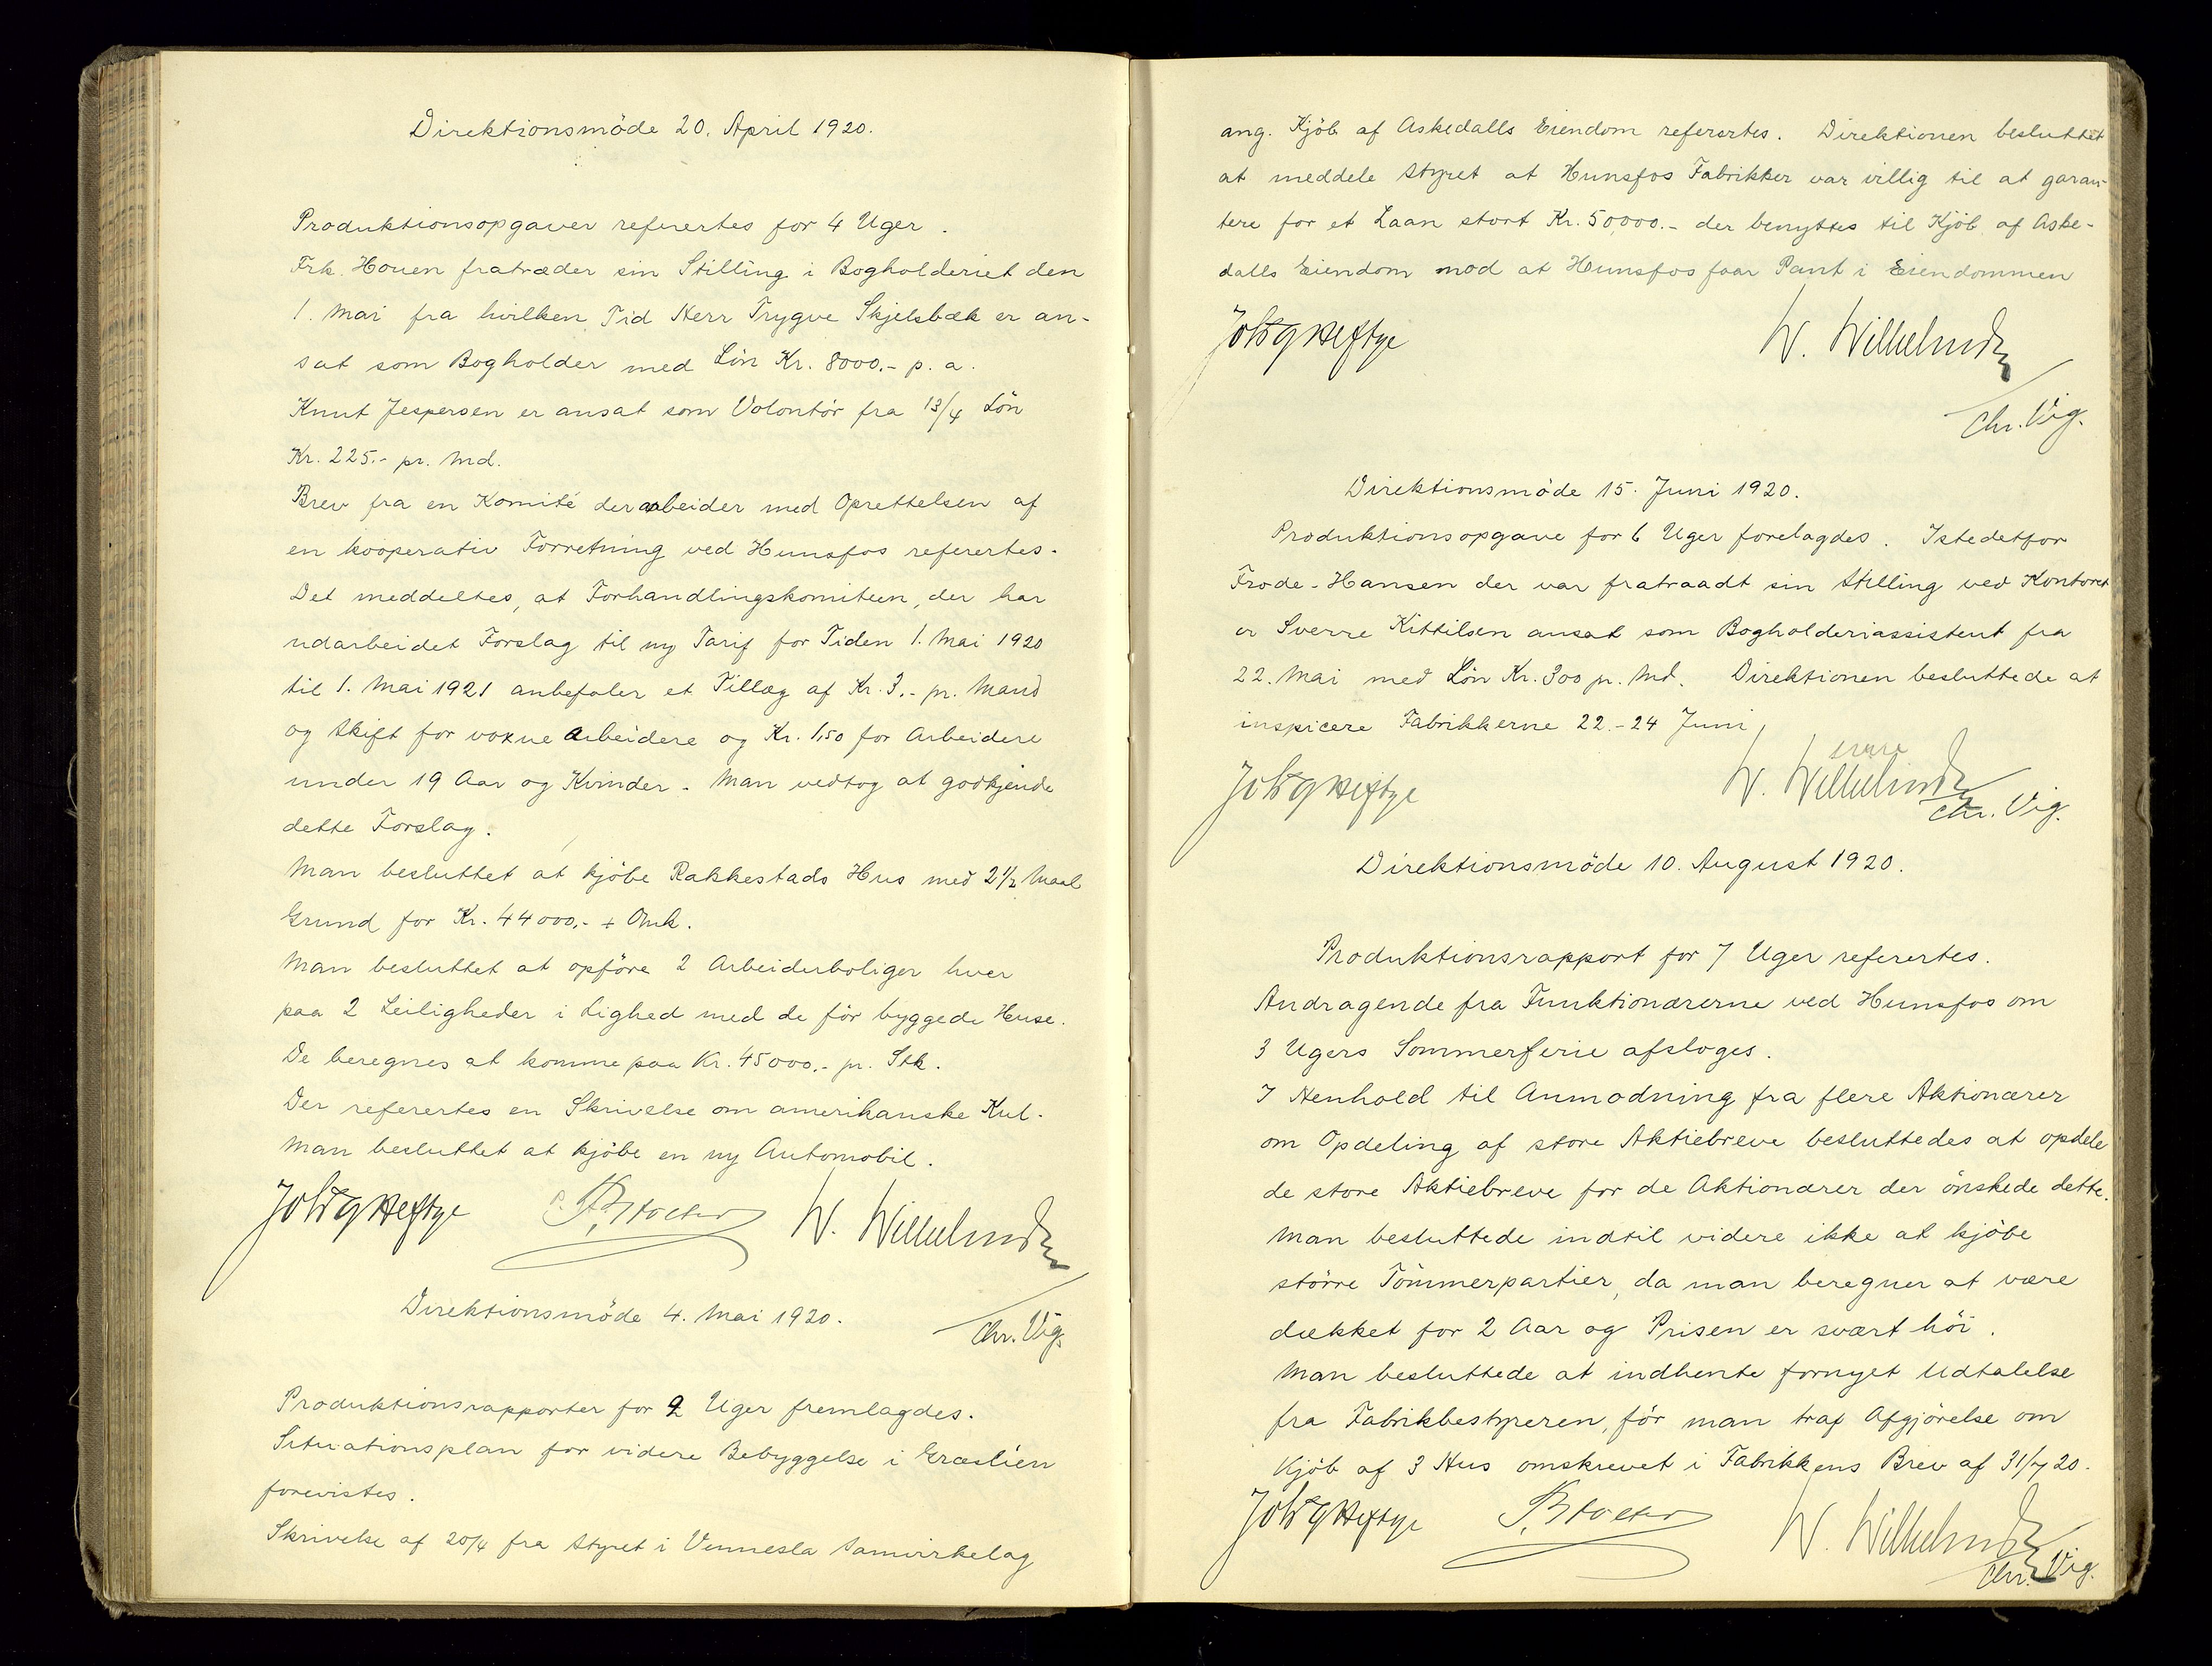 Direktionsmöde 20. April 1920.
Produktionsopgaver referertes for 4 Uger.
Frk. Houen fratræder sin Stilling i Bogholderiet den
1. Mai fra hvilken Tid Herr Trygve Skjelsbæk er an-
sat som Bogholder med Lön Kr. 8000.- p. a.
Knut Jespersen er ansat som Volontör fra 13/4 Lön
Kr. 225.- pr. Md.
Brev fra en Komité der arbeider med Oprettelsen af
en kooperativ Forretning ved Hunsfos referertes.
Det meddeltes, at Forhandlingskomiteen, der har
udarbeidet Forslag til ny Tarif for Tiden 1. Mai 1920
til 1. Mai 1921 anbefaler et Tillæg af Kr. 3.- pr. Mand
og Skift for voxne Arbeidere og Kr. 1,50 for Arbeidere
under 19 Aar og Kvinder. Man vedtog at godkjende
dette Forslag.
Man besluttet at kjöbe Rakkestads Hus med 2 1/2 Maal
Grund for Kr. 44000,- + Omk.
Man besluttet at opföre 2 Arbeiderboliger hver
paa 2 Leiligheder i Lighed med de för byggede Huse.
De beregnes at komme paa Kr. 45000.- pr. Stk.
Der referertes en Skrivelse om amerikanske Kul.
Man besluttet at kjöbe en ny Automobil.
Joh Heftye W. Wilhelmsen
Chr. Vig.
Direktionsmöde 4. Mai 1920.
Produktionsrapporter for 2 Uger fremlagdes.
Situationsplan for videre Bebyggelse i Græslien
forevistes.
Skrivelse af 20/4 fra Styret i Vennesla Samvirkelag
ang. Kjöb af Askedalls Eiendom referertes. Direktionen besluttet
at meddele Styret at Hunsfos Fabrikker var villig til at garan-
tere for et Laan stort Kr. 50,000.- der benyttes til Kjöb af Aske-
dalls Eiendom mod at Hunsfos faar Pant i Eiendommen
Heftye W. Wilhelmsen
Chr. Vig.
Direktionsmöde 15. Juni 1920.
Produktionsopgave for 6 Uger forelagdes. Istedetfor
Frode-Hansen der var fratraadt sin Stilling ved Kontoret
er Sverre Kittilsen ansat som Bogholderiassistent fra
22. Mai med Lön Kr. 300 pr. Md. Direktionen besluttede at
inspicere Fabrikkerne 22.-24 Juni
Heftye W. Wilhelmsen
Chr. Vig.
Direktionsmöde 10. August 1920.
Produktionsrapport for 7 Uger referertes.
Andragende fra Funktionærerne ved Hunsfos om
3 Ugers Sommerferie afsloges.
I Henhold til Anmodning fra flere Aktionærer
om Opdeling af store Aktiebreve besluttedes at opdele
de store Aktiebreve for de Aktionærer der önskede dette.
Man besluttede indtil videre ikke at kjöbe
större Tömmerpartier, da man beregner at være
dækket for 2 Aar og Prisen er svært höi.
Man besluttede at indhente fornyet Udtalelse
fra Fabrikbestyreren, för man traf Afgjörelse om
Kjöb af 3 Hus omskrevet i Fabrikkens Brev af 31/7 20.
Heftye W. Wilhelmsen
Chr. Vig.